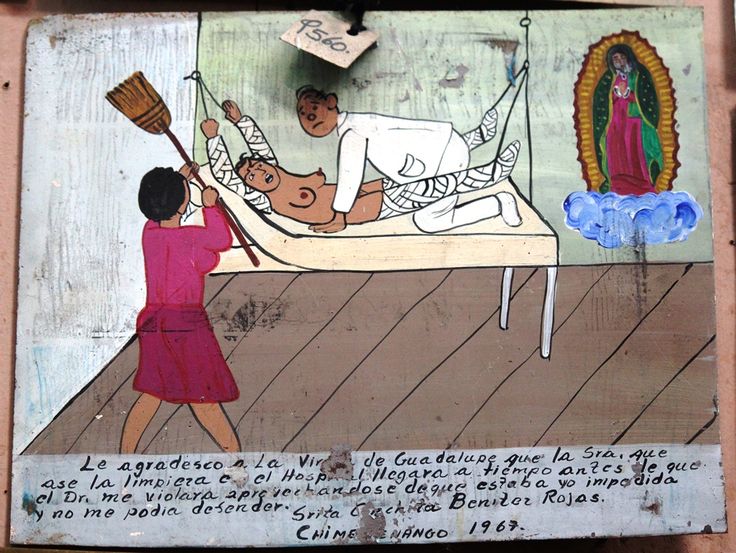 P560.
Le agradesco a La Vir de Guadalupe que la Sra. que
ase la limpiera e el Hosp l llegara a tiempo antes de que
el Dr. me violara aprovechandose de que estaba yo impedida
y no me podia defender. Srita C chita Benitez Rojas.
CHIM NANGO 1967.